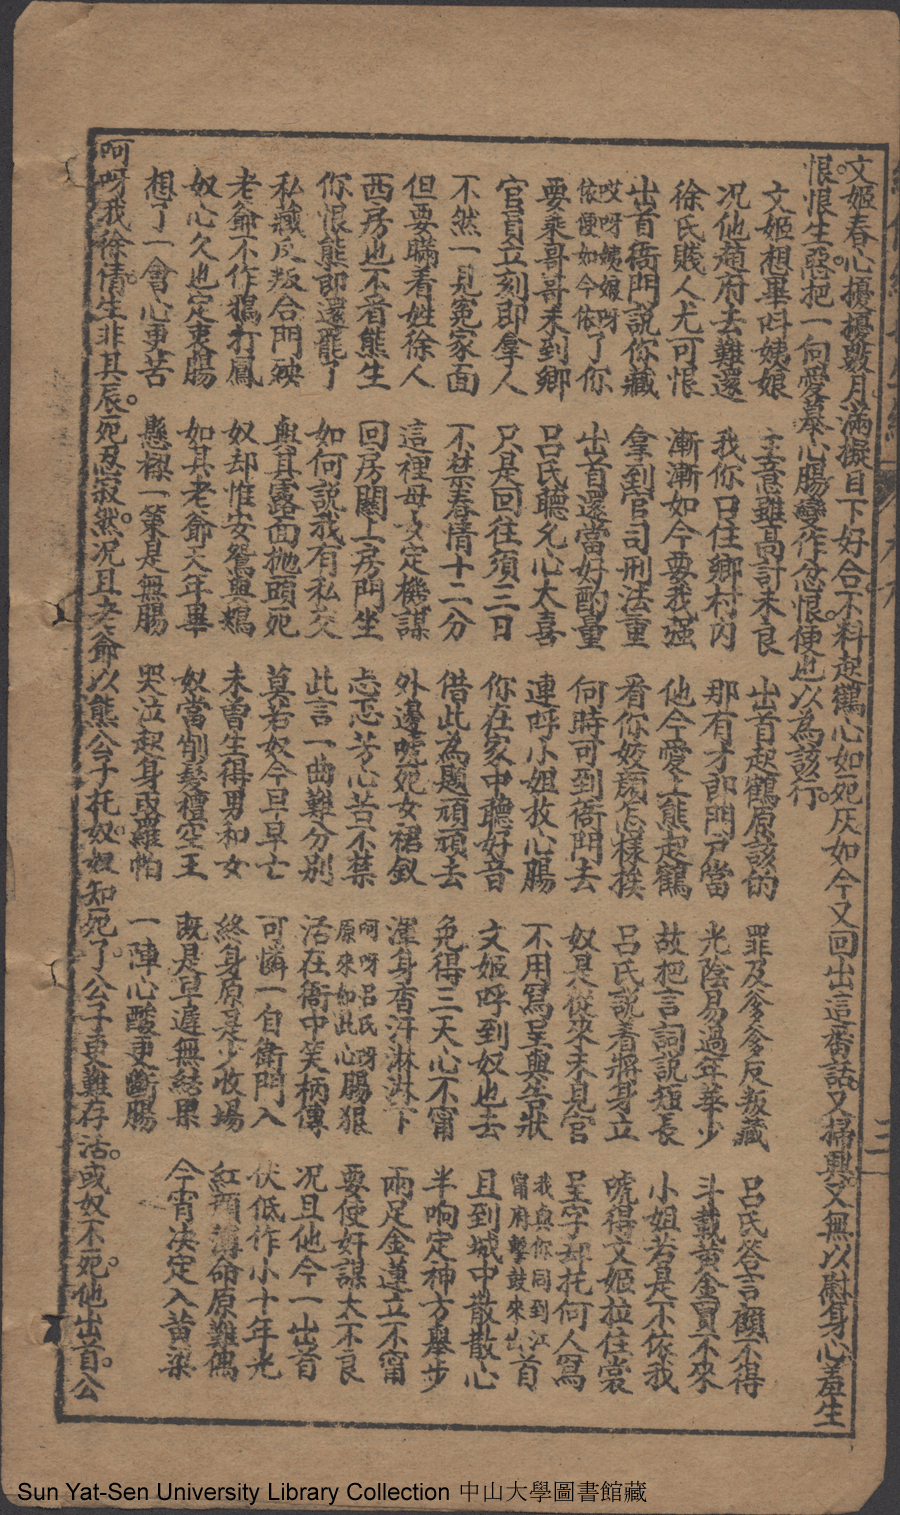 文姬春心擾擾數月。滿擬目下好合。不料起鶴心如死灰。如今又回出這番話。又掃興。又無以慰身心。羞生
恨。恨生惡。把一向愛慕心腸。變作忿恨。使也以為該行。
文姬想畢呌姨娘 主意雖高計未良 出首起鶴原該的 罪及爹爹反叛藏 呂氏答言顧不得
况他趙府去難還 我你只住鄉村內 那有才郎門戶當 光陰易過年華少 斗載黃金買不來
徐氏賤人尤可恨 漸漸如今要我強 他今愛上熊起鶴 故把言詞說短長 小姐若是不依我
出首衙門說你藏 拿到官司刑法重 看你姣顏怎樣挨 呂氏說着將身立 唬得文姬拉住裳
哎呀姨娘呀依便如今依了你 出首還當好酌量 何時可到衙門去 奴是從來未見官 呈字却托何人寫
要乘哥哥未到鄉 呂氏聽允心大喜 連呼小姐放心腸 不用寫呈與告狀 我與你同到江甯府擊鼓來出首
官員立刻即拿人 只是回往須三日 你在家中聽好音 文姬呼到奴也去 且到城中散散心
不然一見冤家面 不禁春情十二分 借此為題頑頑去 免得三天心不甯 半响定神方舉步
但要瞞着姓徐人 這裡母女定機謀 外邊唬死女裙釵 渾身香汗淋淋下 兩足金蓮立不甯
西房也不看熊生 回房關上房門坐 忐忑芳心苦不禁 呵呀呂氏呀原來如此心腸狠 要使奸謀太不良
你恨熊郎還罷了 如何說我有私交 此言一曲難分別 活在衙中笑柄傳 况且他今一出首
私藏反叛合門殃 與其露面拋頭死 莫若奴今早早亡 可憐一自衙門入 伏低作小十年光
老爺不作鴉打鳳 奴却惟安鴛與鴆 未曾生得男和女 終身原是少收場 紅顏薄命原難偶
奴心久也定衷腸 如其老爺天年畢 奴當削髮禮空王 既是早遲無結果 今宵决定入黃梁
想了一會心更苦 懸樑一策是無腸 哭泣起身取羅帕 一陣心酸更斷腸
呵呀我徐倩。生非其辰。死忍寂然。况且老爺以熊公子托奴。奴知死了。公子更難存活。或奴不死。他出首。公
三
Sun Yat-Sen University Library Collection 中山大學圖書館藏